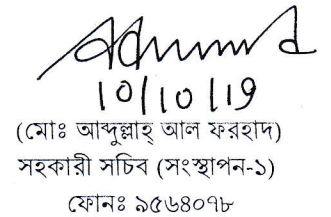 10/10/19
(মোঃ আব্দুল্লাহ্ আল ফরহাদ)
সহকারী সচিব (সংস্থাপন-১)
ফোনঃ ৯৫৬৪০৭৮